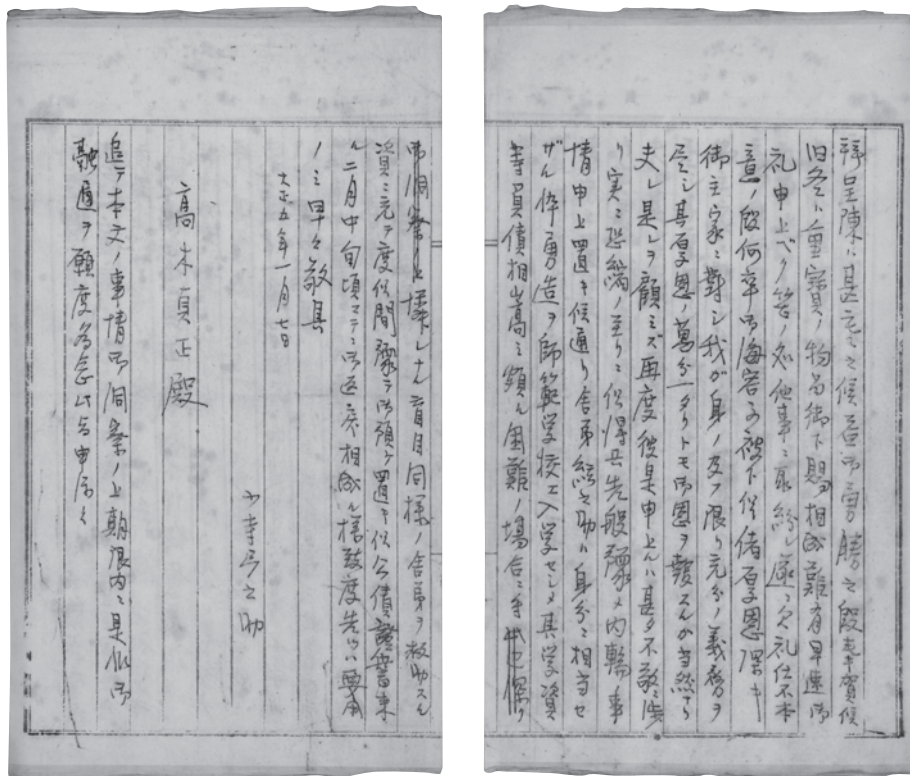 拝呈陳ハ甚寒之候益御勇勝之段奉賀候
旧冬ハ重宝ノ物品御下賜相成難有早速御
礼申上ベク筈ノ処他事ニ取紛レ遂ニ欠礼仕不本
意ノ段何卒御海容可被下候偖厚恩深キ
御主家ニ対シ我ガ身ノ及ブ限リ充分ノ義務ヲ
尽シ其厚恩ノ萬分一タリトモ御恩ヲ報スルガ当然ナリ
夫レ是レヲ顧ミズ再度彼是申上ルハ甚ダ不敬ニ渉
リ実ニ恐縮ノ至リニ候得共先般予メ内輪事
情申上置キ候通リ舎弟 之助ハ身分ニ相当セ
ザル倅勇造ヲ師範学校エ入学セシメ其学資
等負債相嵩ミ頗ル困難ノ場合ニ
御洞察ノ上 盲目同様ノ舎弟ヲ救助スル
資ニ充テ度候間予テ御預ケ置キ候公債証書来
ル二月中旬頃マテニ御返戻相成ル様致度先ツハ要用
ノミ早々敬具
大正五年一月七日
寺弓之助
高木貞正殿
追テ本文ノ事情御洞察ノ上期限内ニ是非御
融通ヲ願度為念此如申添候